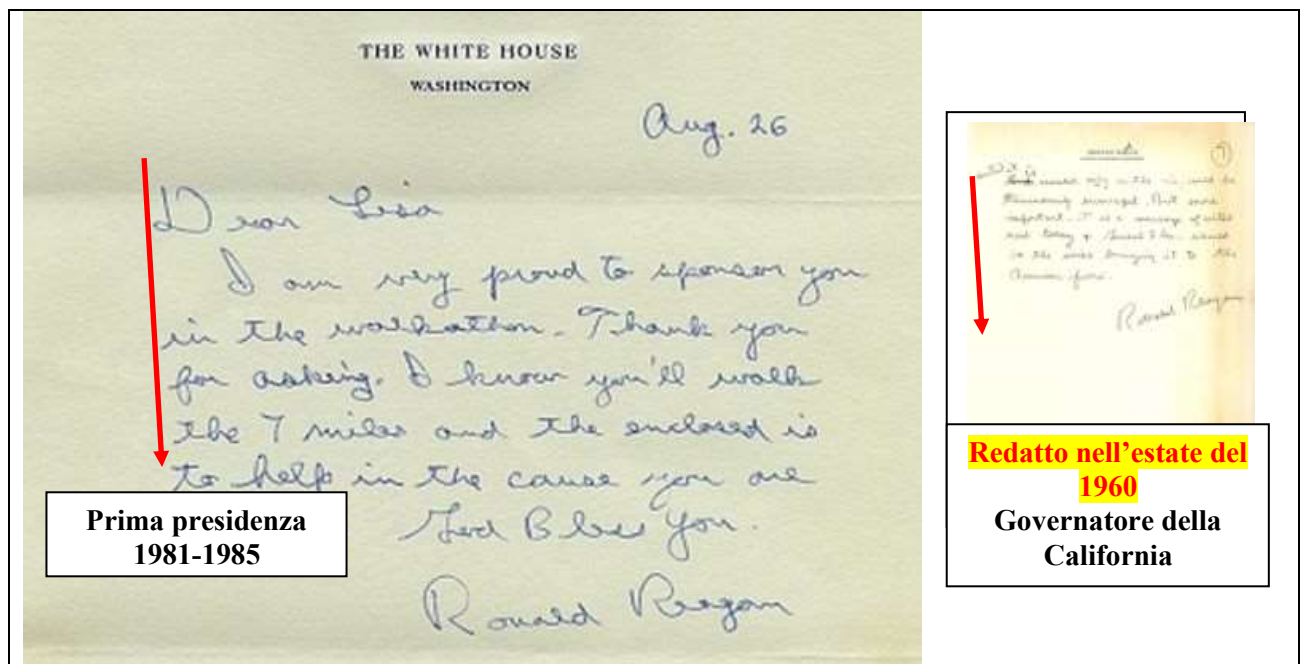 THE WHITE HOUSE
WASHINGTON
Aug. 26
Dear Lisa
I am very proud to sponsor you
in the walkathon. Thank you
for asking. I know you'll walk
the 7 miles and the enclosed is
to help in the cause you are
God Bless You.
Ronald Reagan
Prima presidenza
1981-1985
But more
important it is a message of
today
bringing it to the
Ronald Reagan
Redatto nell’estate del
1960
Governatore della
California